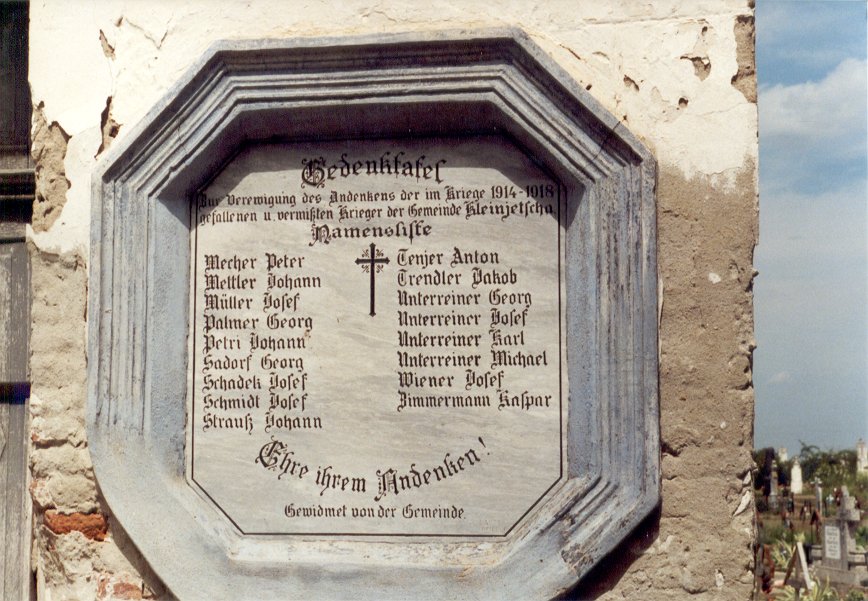 Gedenktafel
Zur Verewigung des Andenkens der im Kriege 1914-1918
gefallenen u. vermißten Krieger der Gemeinde Kleinjetscha
Namensliste
Mecher Peter
Mettler Johann
Müller Josef
Palmer Georg
Petri Johann
Sadorf Georg
Schadek Josef
Schmidt Josef
Strauß Johann
Tenjer Anton
Trendler Jakob
Unterreiner Georg
Unterreiner Josef
Unterreiner Karl
Unterreiner Michael
Wiener Josef
Zimmermann Kaspar
Ehre ihrem Andenken!
Gewidmet von der Gemeinde.